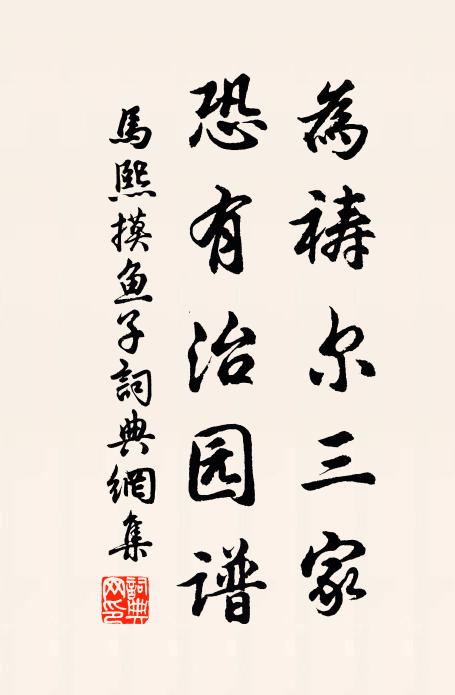 為祷尔三家
恐有治园谱
馬熙摸鱼子詞典網集
詞典网印